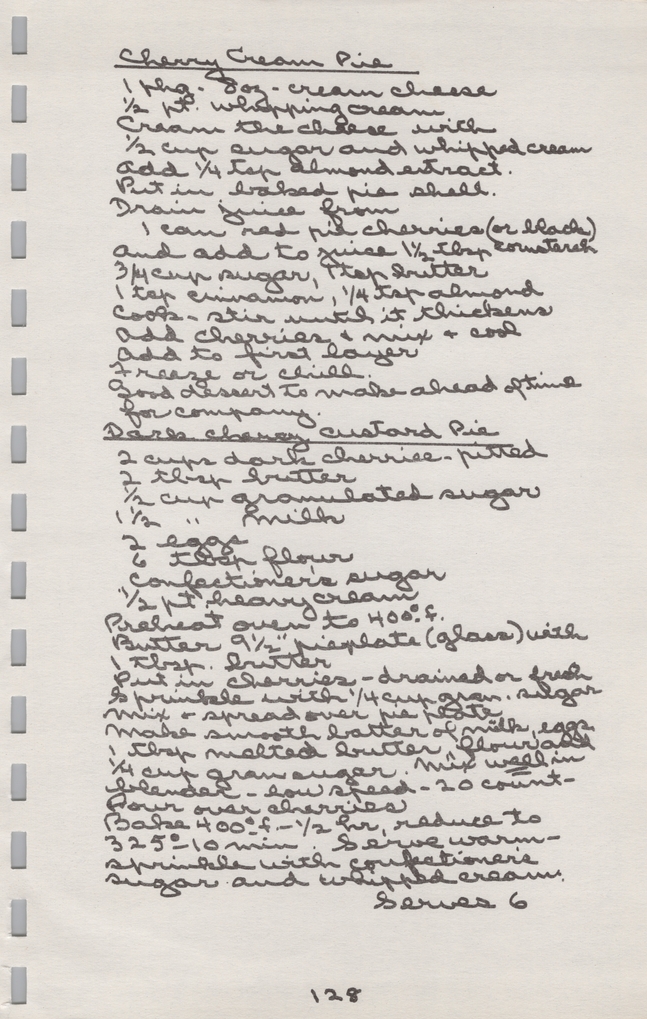 Cherry Cream Pie
1 phg. 8oz - cream cheese
1/2 pt. whipping cream
Cream the cheese with
1/2 cup sugar and whipped cream
add 1/4 tsp almond extract.
Put in baked pie shell.
Drain juice from
1 can red pie cherries (or black)
and add to juice 1 1/2 tbsp cornstarch
3/4 cup sugar, 1 tsp butter
1 tsp cinnamon, 1/4 tsp almond
Cook - stir until it thickens
add cherries + mix + cool
add to first layer
Freeze or chill.
Good dessert to make ahead of time
for company.
Dark cherry custard Pie
2 cups dark cherries - pitted
2 tbsp butter
1/2 cup granulated sugar
1 1/2 " milk
2 eggs
6 tbsp flour
Confectioner's sugar
1/2 pt heavy cream
Preheat oven to 400° f.
Butter 9 1/2" pieplate (glass) with
1 tbsp. butter
Put in cherries - drained or fresh
Sprinkle with 1/4 cup gran. sugar
mix + spread over pie plate
Make smooth batter of milk, eggs
1 tbsp melted butter, flour and
1/4 cup gran sugar. Mix well in
blender - low speed - 20 count -
Pour over cherries
Bake 400° f. - 1/2 hr, reduce to
325° - 10 min. Serve warm -
sprinkle with confectioners
sugar and whipped cream.
Serves 6
128